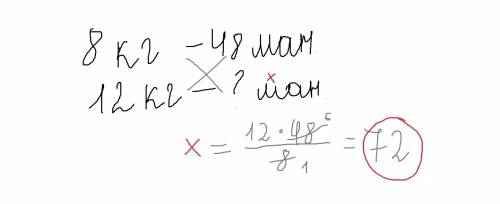 8 кг – 48 ман
12 кг – ? x ман
x = 12 · 48 6 / 8 1 = 72